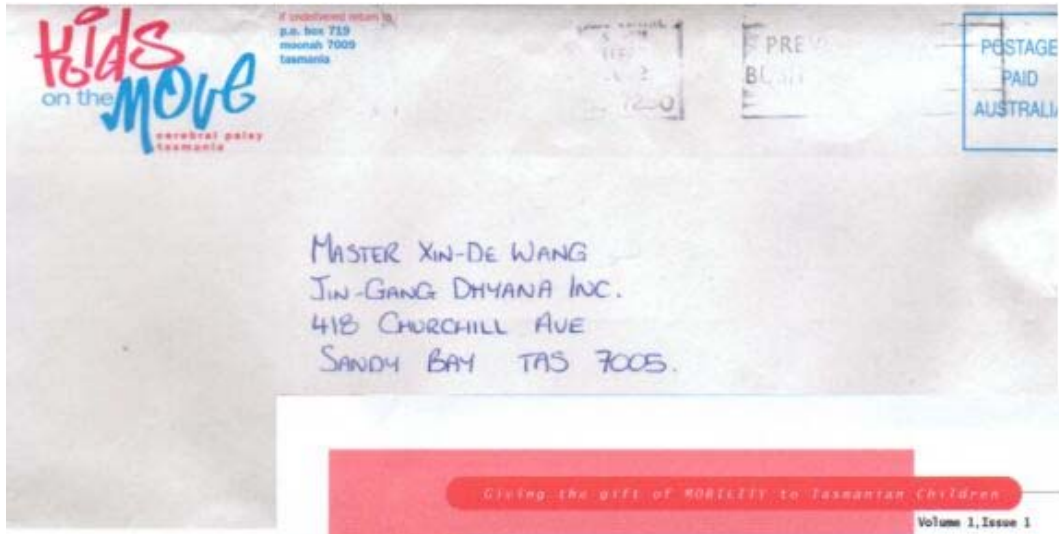 Kids
on the MOVE
cerebral palsy
tasmania
if undelivered return to
p.o. box 719
moonah 7009
tasmania
POSTAGE
PAID
AUSTRALIA
MASTER XIN-DE WANG
JIN-GANG DHYANA INC.
418 CHURCHILL AVE
SANDY BAY TAS 7005.
Giving the gift of MOBILITY to Tasmanian Children
Volume 1, Issue 1